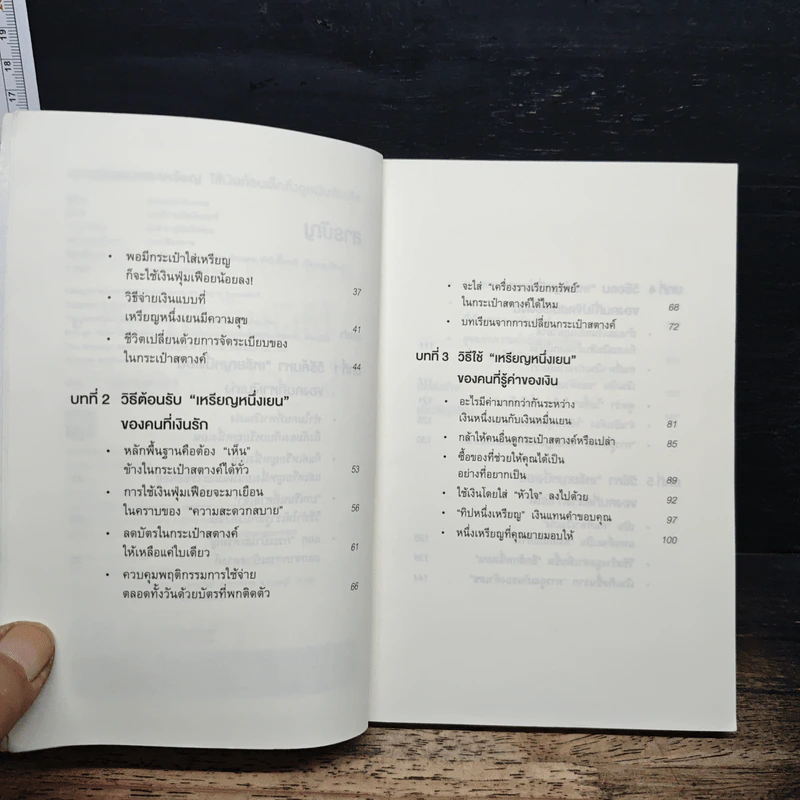 17 18 19
• พอมีกระเป๋าใส่เหรียญ
ก็จะใช้เงินฟุ่มเฟือยน้อยลง! 37
• วิธีจ่ายเงินแบบที่
เหรียญหนึ่งเยนมีความสุข 41
• ชีวิตเปลี่ยนด้วยการจัดระเบียบของ
ในกระเป๋าสตางค์ 44
บทที่ 2 วิธีต้อนรับ “เหรียญหนึ่งเยน”
ของคนที่เงินรัก
• หลักพื้นฐานคือต้อง “เห็น”
ข้างในกระเป๋าสตางค์ได้ทั่ว 53
• การใช้เงินฟุ่มเฟือยจะมาเยือน
ในคราบของ “ความสะดวกสบาย” 56
• ลดบัตรในกระเป๋าสตางค์
ให้เหลือแค่ใบเดียว 61
• ควบคุมพฤติกรรมการใช้จ่าย
ตลอดทั้งวันด้วยบัตรที่พกติดตัว 66
• จะใส่ “เครื่องรางเรียกทรัพย์”
ในกระเป๋าสตางค์ได้ไหม 68
• บทเรียนจากการเปลี่ยนกระเป๋าสตางค์ 72
บทที่ 3 วิธีใช้ “เหรียญหนึ่งเยน”
ของคนที่รู้ค่าของเงิน
• อะไรมีค่ามากกว่ากันระหว่าง
เงินหนึ่งเยนกับเงินหมื่นเยน 81
• กล้าให้คนอื่นดูกระเป๋าสตางค์หรือเปล่า 85
• ซื้อของที่ช่วยให้คุณได้เป็น
อย่างที่อยากเป็น 89
• ใช้เงินโดยใส่ “หัวใจ” ลงไปด้วย 92
• “ทิปหนึ่งเหรียญ” เงินแทนคำขอบคุณ 97
• หนึ่งเหรียญที่คุณยายมอบให้ 100